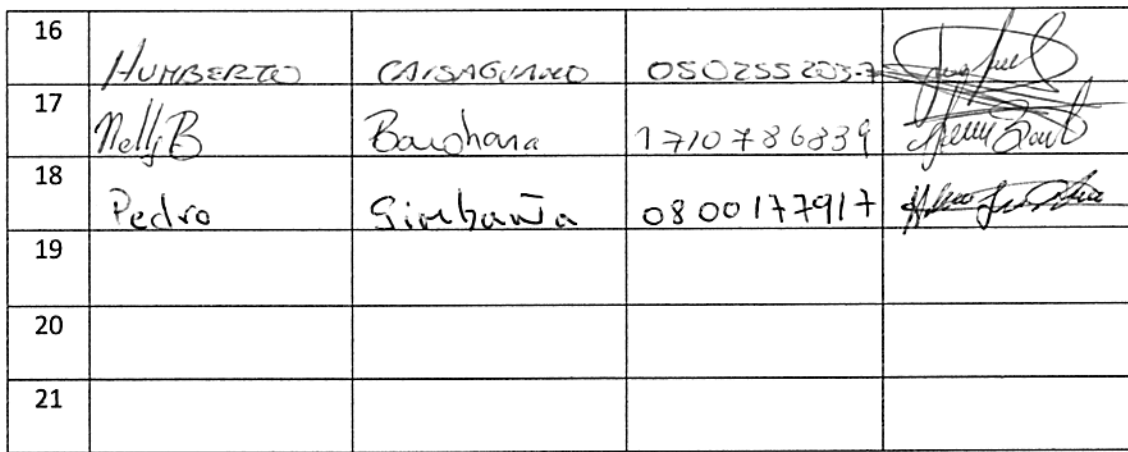 16 HUMBERTO CAISAGUANO 050255203-7
17 Nelly B 1710786839
18 Pedro Simbaña 0800177917
19
20
21